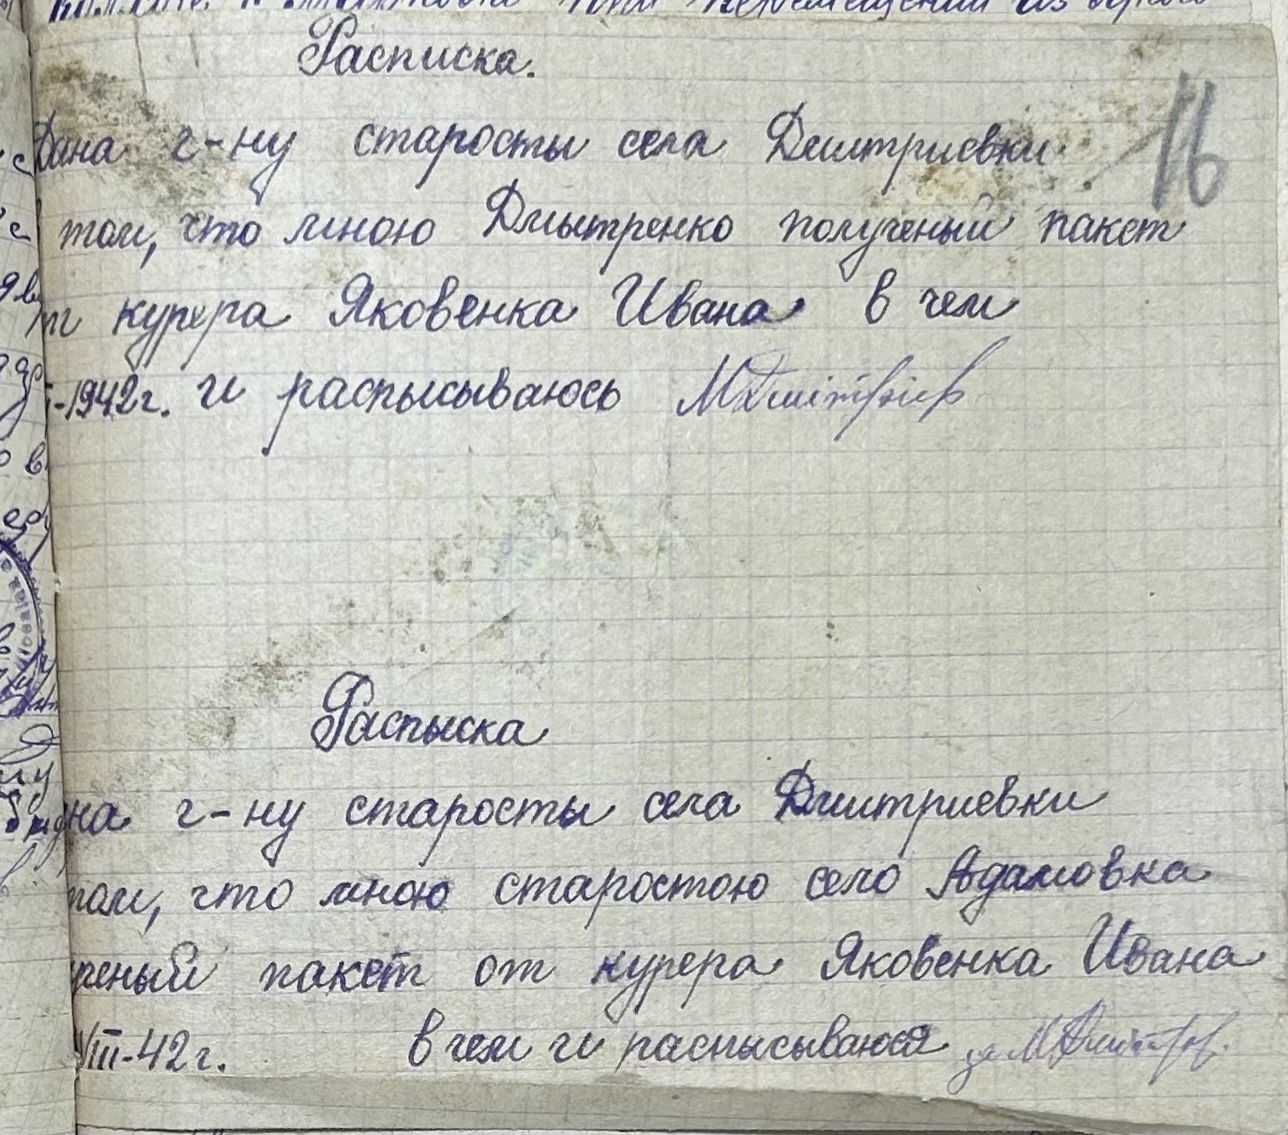 Расписка.
16
Дана г-ну старосты села Дмитриевки
том, что мною Дмытренко полученый пакет
курера Яковенка Ивана в чем
-1942г. и распысываюсь
Распыска
на г-ну старосты села Дмитриевки
том, что мною старостою село Адамовка
ченый пакет от курера Яковенка Ивана
VIII-42г. в чем и распысываюся